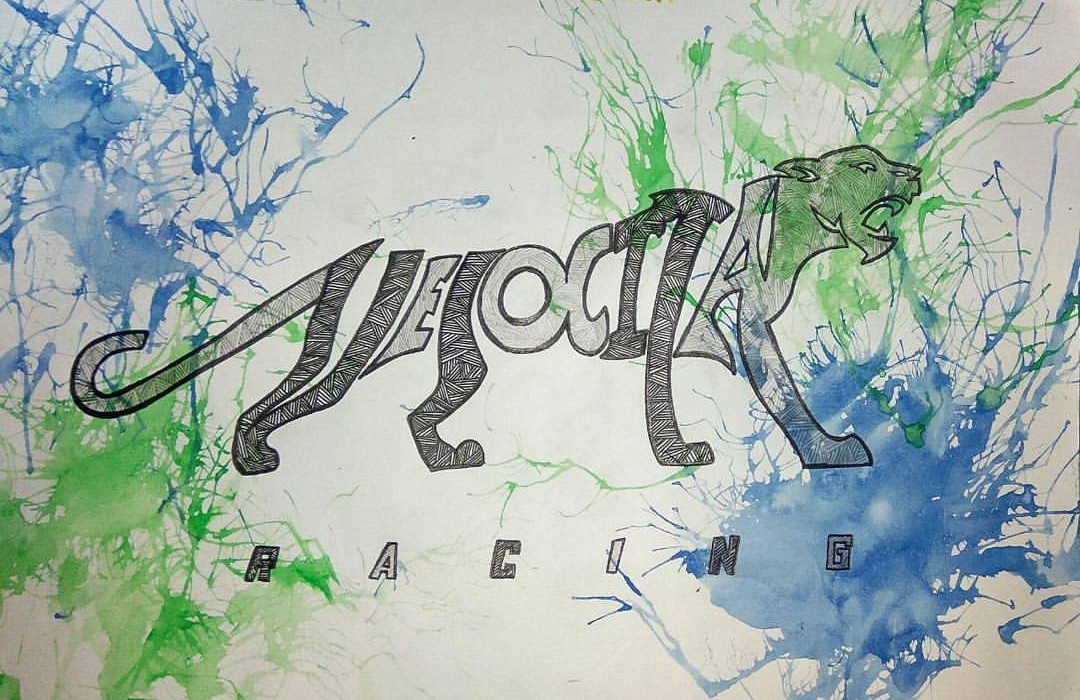 VELOCITA
RACING